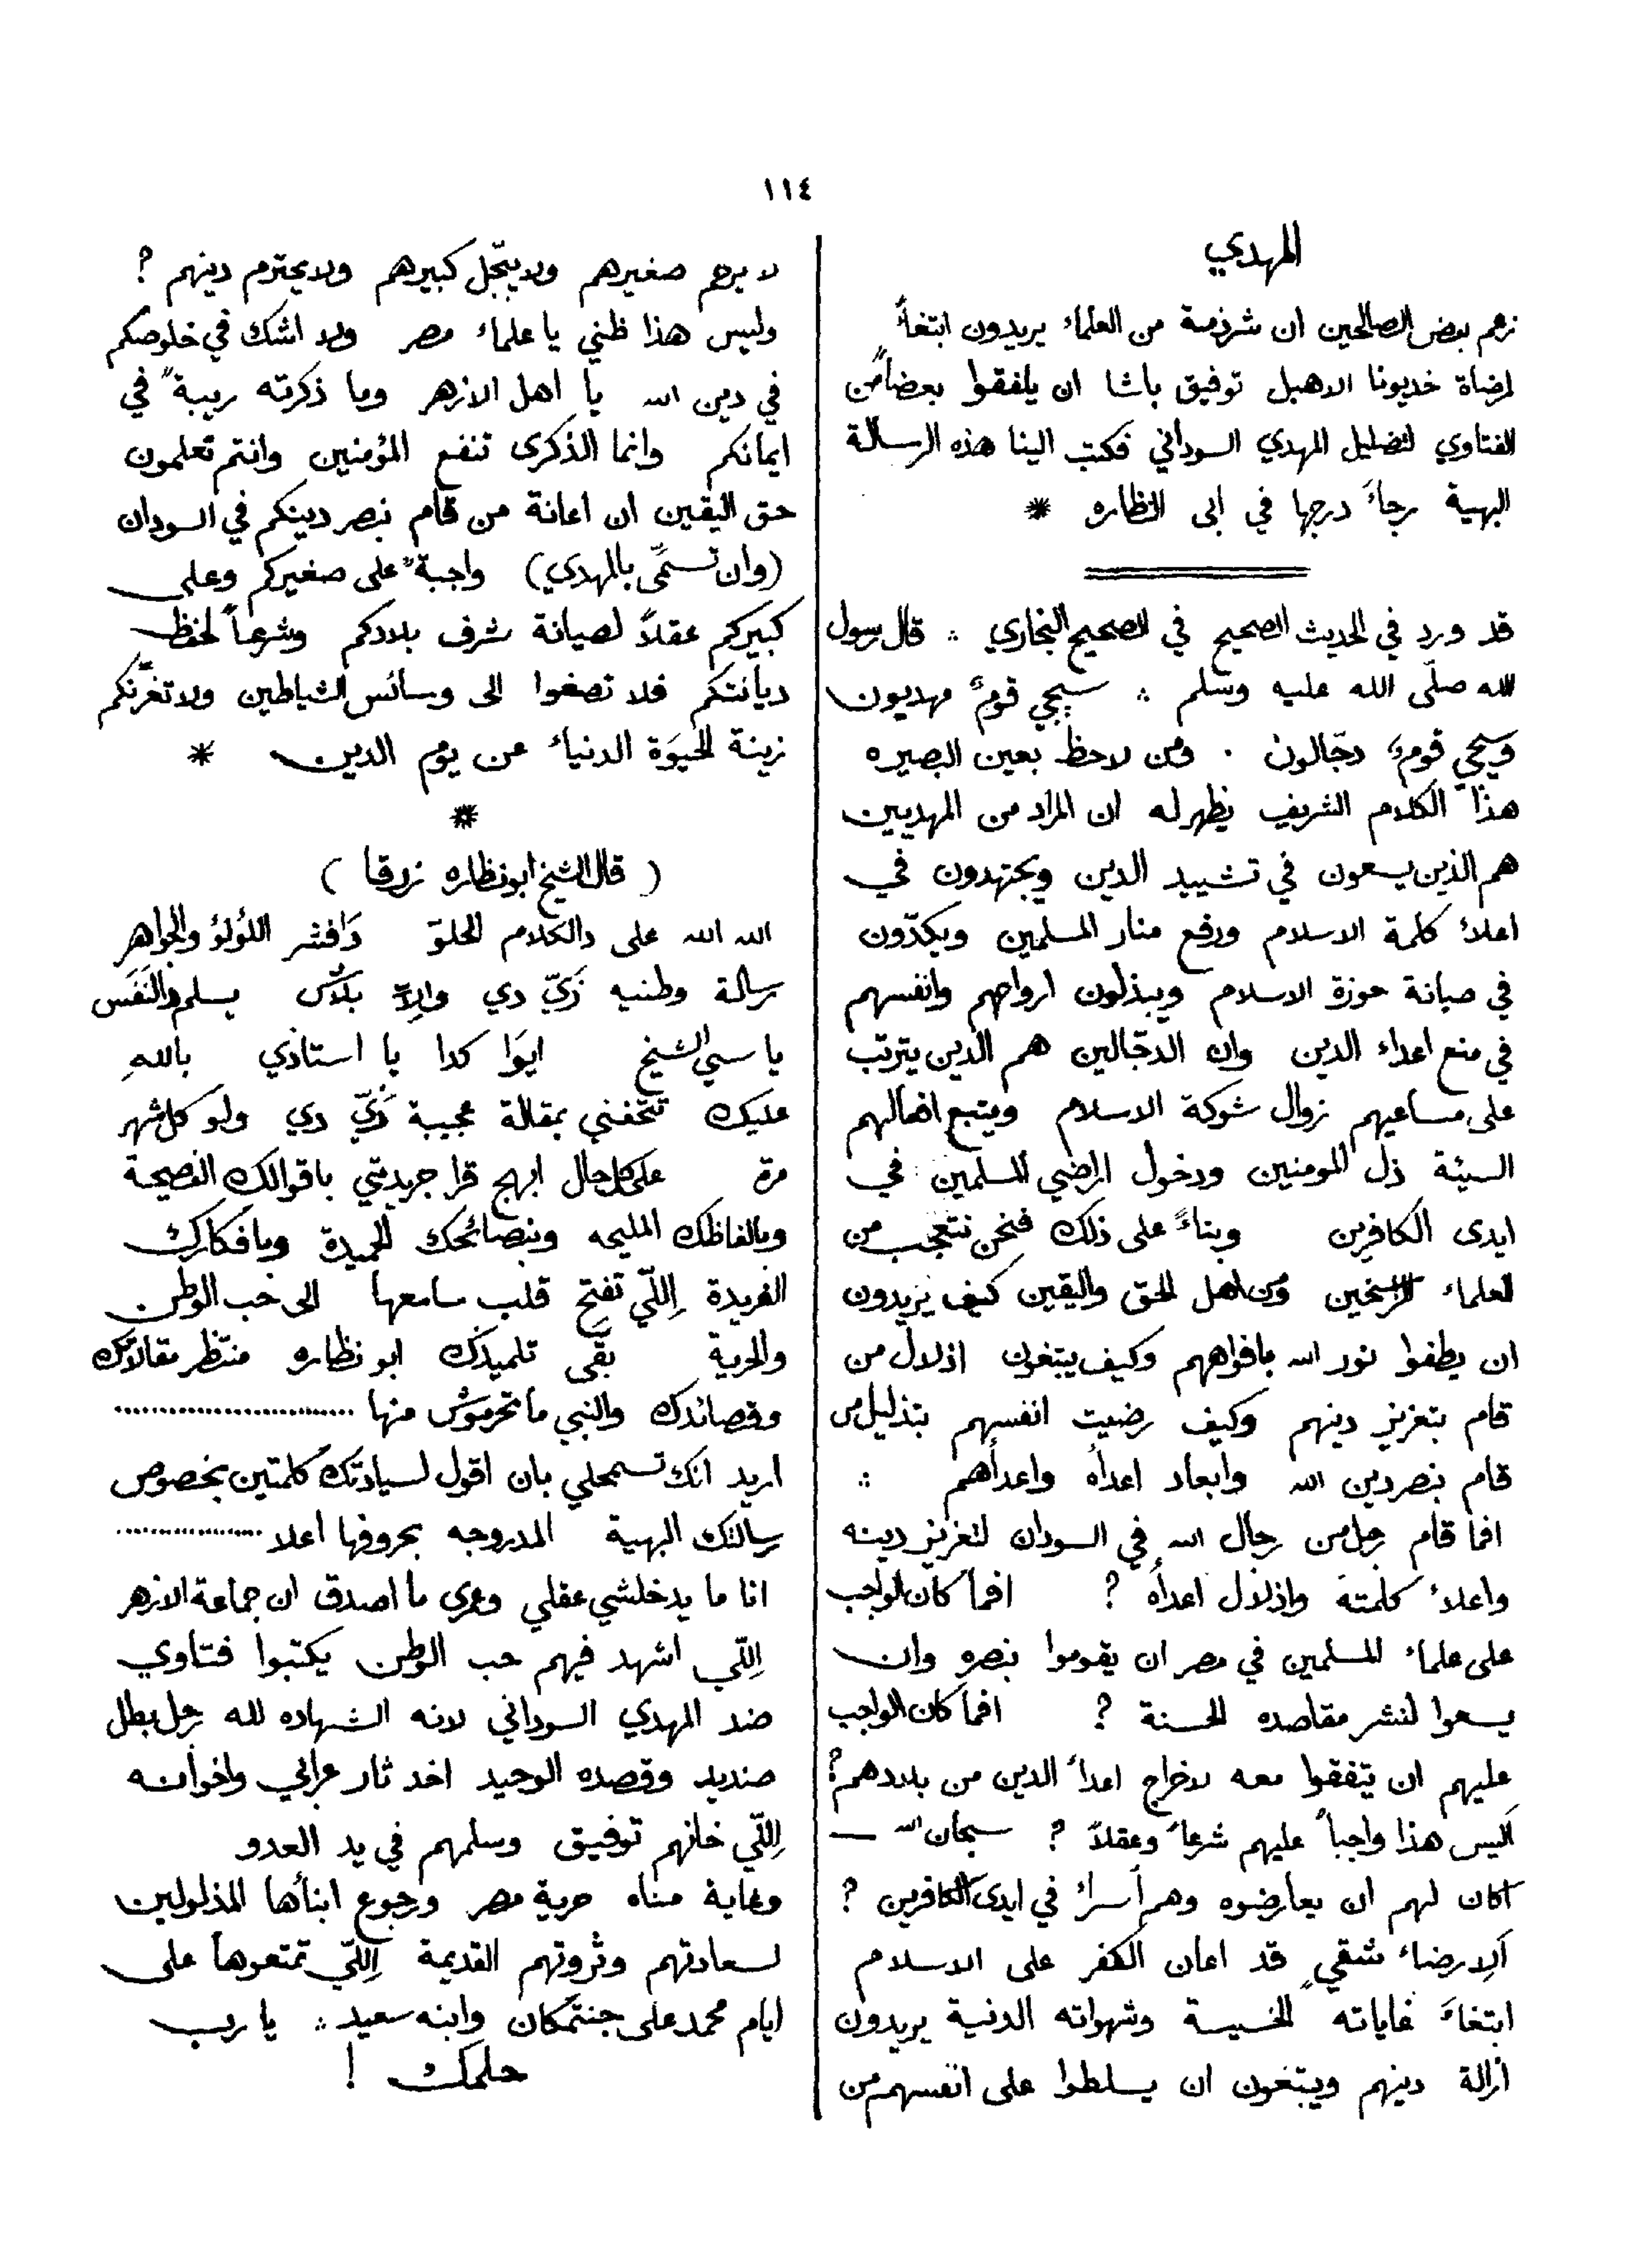 ١١٤
المهدي
زعم بعض الصالحين ان شرذمة من العلماء يريدون ابتغاً
لمرضاة خديونا الاهبل توفيق باشا ان يلفقوا بعضاً من
الفتاوي لتضليل المهدي السوداني فكتب الينا هذه الرسالة
البهية رجاءَ درجها في ابى النظاره *
قد ورد في الحديث الصحيح في الصحيح البخاري ∴ قال رسول
الله صلّى الله عليه وسلم ∴ سيجي قومٌ مهديون
وسيجي قومٌ دجّالون . ومن لاحظ بعين البصيره
هذا الكلام الشريف يظهر له ان المراد من المهديين
هم الذين يسعون في تشييد الدين ويجتهدون في
اعلاء كلمة الاسلام ورفع منار المسلمين ويكدّون
في صيانة حوزة الاسلام ويبذلون ارواحهم وانفسهم
في منع اعداء الدين وان الدجّالين هم الذين يترتب
على مساعيهم زوال شوكة الاسلام ويتبع افعالهم
السيئة ذل المومنين ودخول اراضي المسلمين في
ايدى الكافرين وبناءً على ذلك فنحن نتعجب من
العلماء الراسخين ومن اهل الحق واليقين كيف يريدون
ان يطفوا نور الله بافواههم وكيف يبتغون اذلال من
قام بتعزيز دينهم وكيف رضيت انفسهم بتذليل من
قام بنصر دين الله وابعاد اعداه واعدأهم ∴
افما قام رجل من رجال الله في السودان لتعزيز دينه
واعلاء كلمته واذلال اعدأه ? افما كان الواجب
على علماء المسلمين في مصر ان يقوموا بنصره وان
يسعوا لنشر مقاصده الحسنة ? افما كان الواجب
عليهم ان يتفقوا معه لاخراج اعداء الدين من بلادهم ?
أليس هذا واجباً عليهم شرعاً وعقلاً ? سبحان الله —
اكان لهم ان يعارضوه وهم أسراء في ايدى الكافرين ?
ألارضاء شقيٍ قد اعان الكفر على الاسلام
ابتغاءَ غاياته الخسيسة وشهواته الدنية يريدون
ازالة دينهم ويبتغون ان يسلطوا على انفسهم من
لا يرحم صغيرهم ولا يبجّل كبيرهم ولا يحترم دينهم ?
وليس هذا ظني يا علماء مصر ولا اشك في خلوصكم
في دين الله يا اهل الازهر وما ذكرته ريبةً في
ايمانكم وانما الذكرى تنفع المؤمنين وانتم تعلمون
حق اليقين ان اعانة من قام بنصر دينكم في السودان
(وان تسمّى بالمهدي) واجبةٌ على صغيركم وعلى
كبيركم عقلاً لصيانة شرف بلادكم وشرعاً لحفظ
ديانتكم فلا تصغوا الى وسائس الشياطين ولا تغرّنكم
زينة الحيوة الدنياء عن يوم الدين *
*
( قال الشيخ ابو نظاره زرقا )
الله الله على دالكلام الحلوّ دَافشر اللؤلؤ والجواهر
رسالة وطنيه زَيّ دي والاّ بلاّش يسلم دالنَفَس
يا سي الشيخ ايوَا كدا يا استاذي باللهِ
عليك تتحفني بمقالة عجيبة زَيّ دي ولو كل شهر
مرة على كل حال ابهج قرا جريدتي باقوالك الفصيحة
وبالفاظك المليحه وبنصائحك الحميدة وبافكارك
الفريدة اِللّي تفتح قلب سامعها الى حب الوطن
والحرية بقى تلميذك ابو نظاره منتظر مقالاتك
وقصائدك والنبي ما تحرموش منها ..........................
اريد انك تسمحلي بان اقول لسيادتك كلمتين بخصوص
رسالتك البهية المدروجه بحروفها اعلا ................
انا ما يدخلشي عقلي وعمري ما اصدق ان جماعة الازهر
اِللّي اشهد فيهم حب الوطن يكتبوا فتاوي
ضد المهدي السوداني لانه الشهاده لله رجل بطل
صنديد وقصده الوحيد اخد ثار عرابي واخوانه
اِللّي خانهم توفيق وسلمهم في يد العدو
وغاية مناه حرية مصر ورجوع ابنأها المذلولين
لسعادتهم وثروتهم القديمة اِللّي تمتعوها على
ايام محمد على جنتمكان وابنه سعيد ∴ يا رب
حلمك !